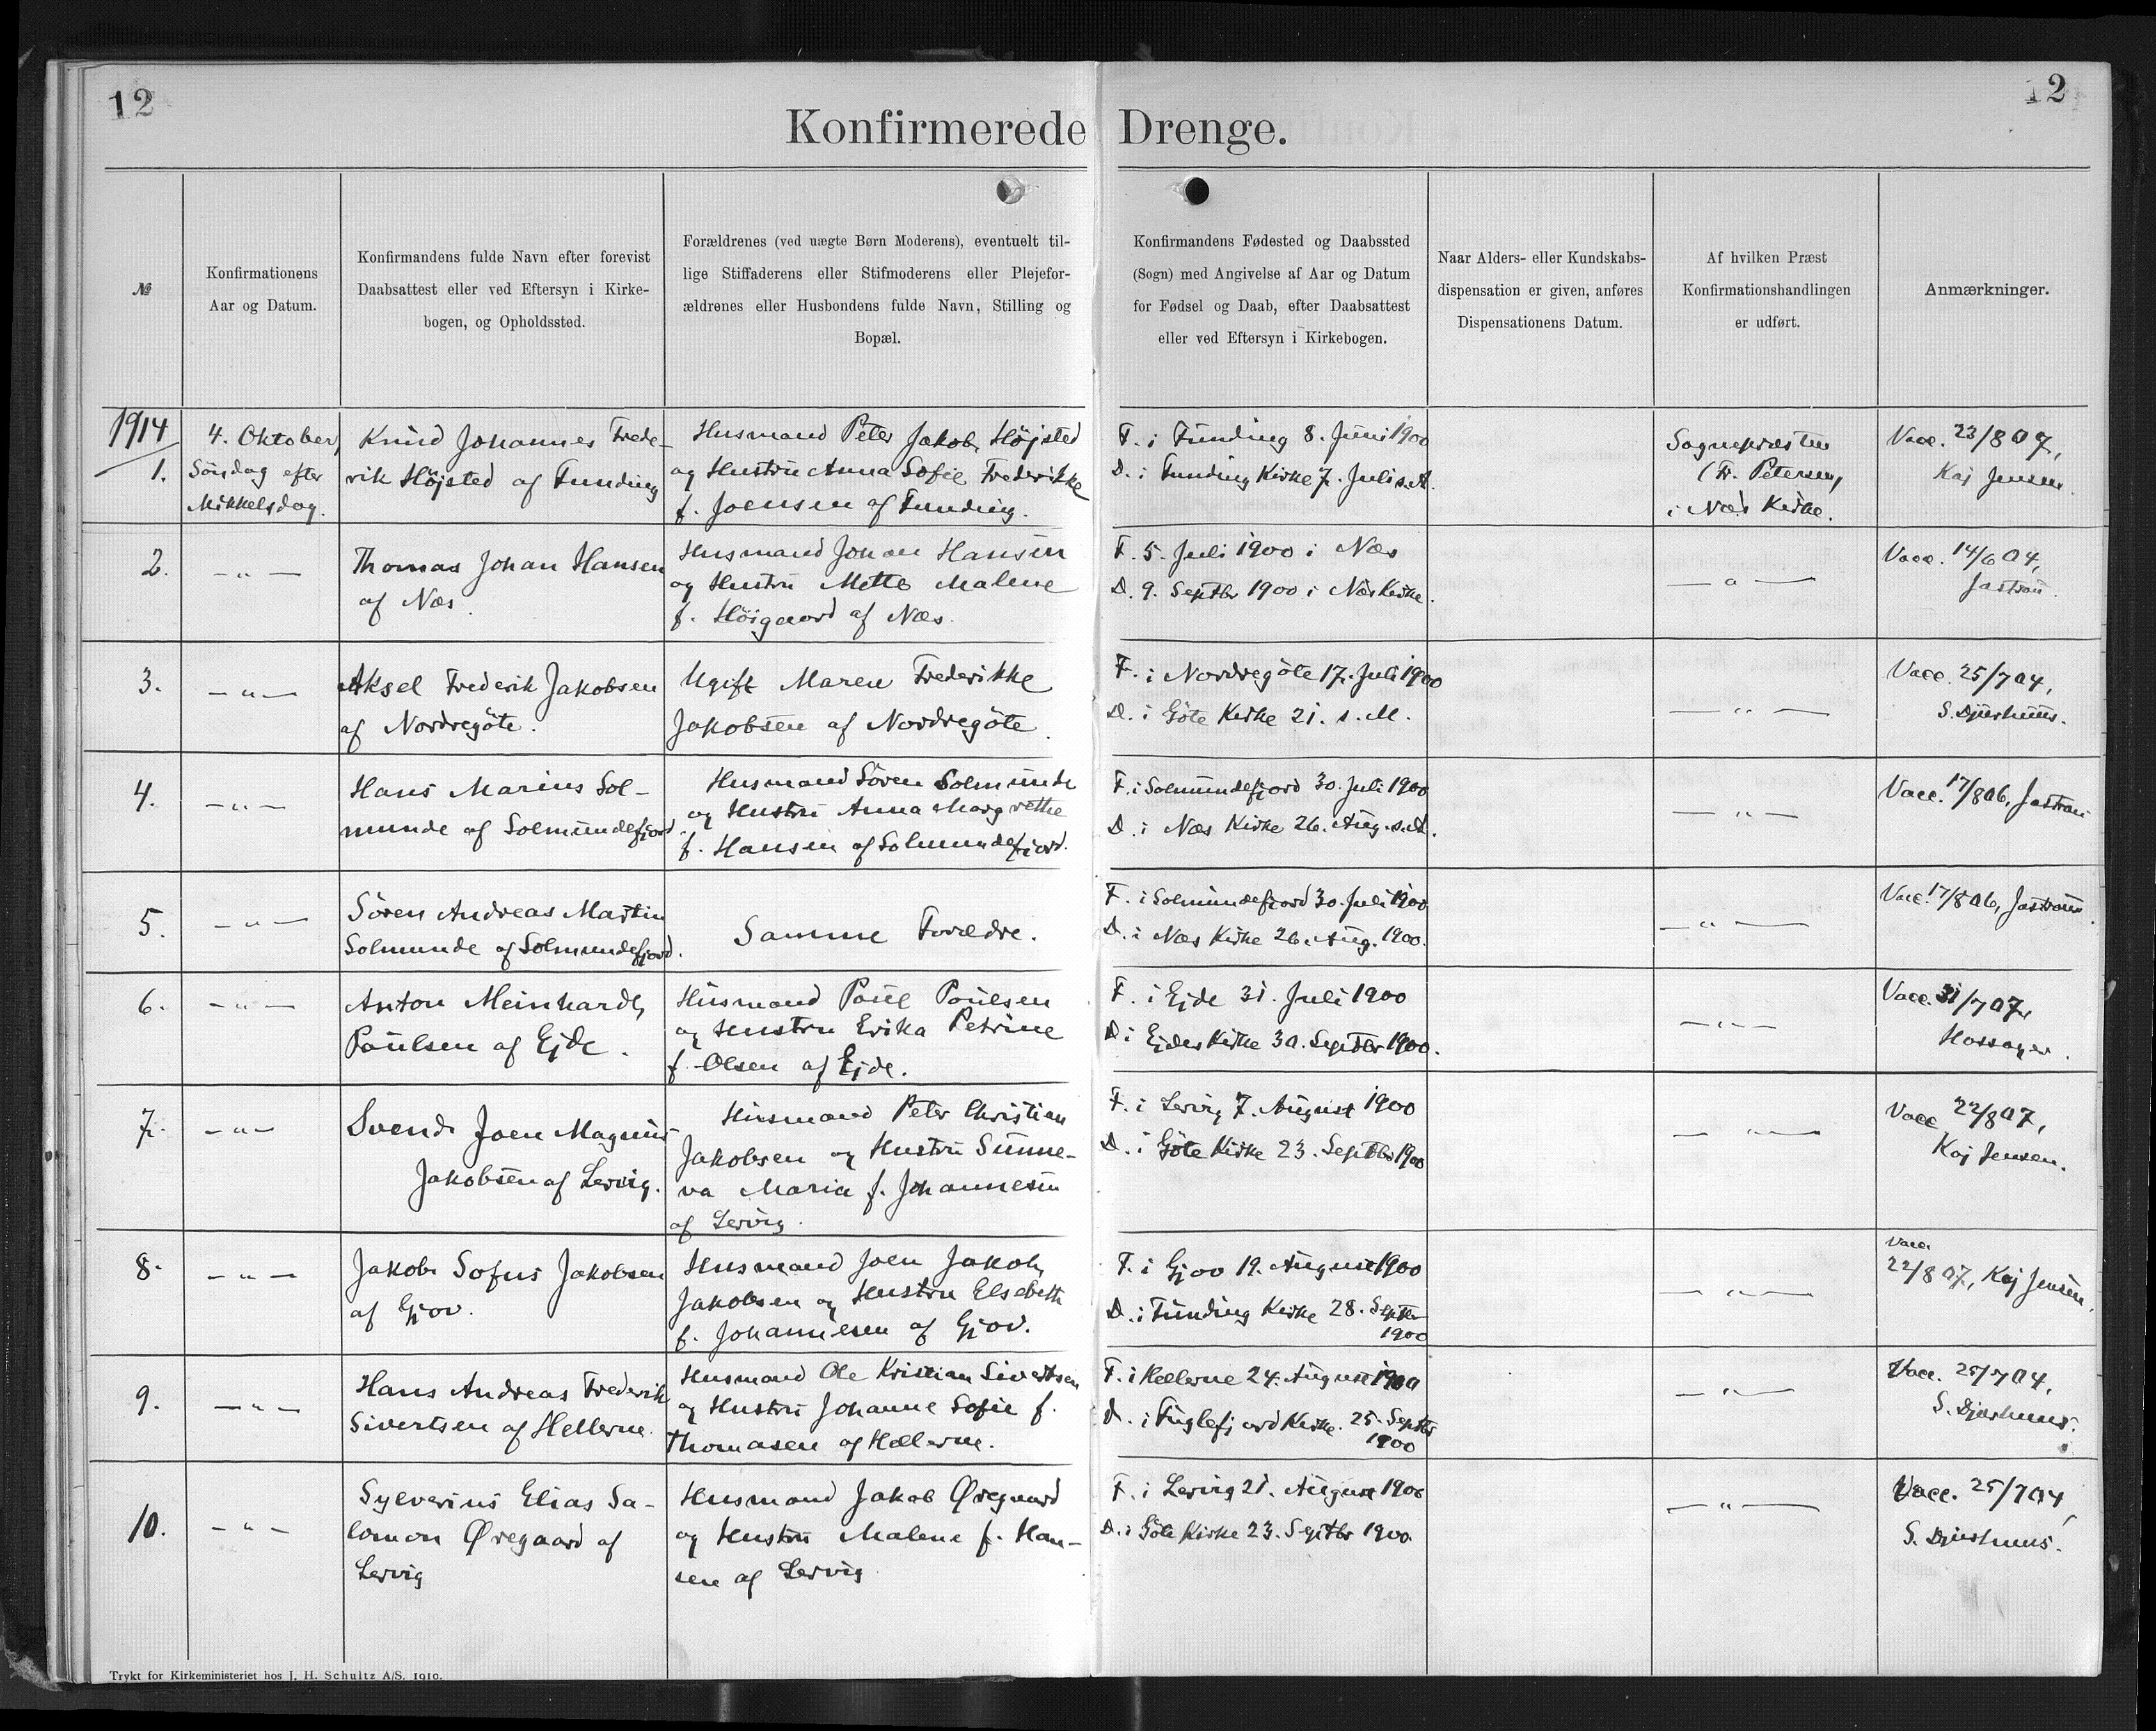 12
12
Konfirmerede Drenge.
№
Konfirmationens
Aar og Datum.
Konfirmandens fulde Navn efter forevist
Daabsattest eller ved Eftersyn i Kirke-
bogen, og Opholdssted.
Forældrenes (ved uægte Børn Moderens), eventuelt til-
lige Stiffaderens eller Stifmoderens eller Plejefor-
ældrenes eller Husbondens fulde Navn, Stilling og
Bopæl.
Konfirmandens Fødested og Daabssted
(Sogn) med Angivelse af Aar og Datum
for Fødsel og Daab, efter Daabsattest
eller ved Eftersyn i Kirkebogen.
Naar Alders- eller Kundskabs-
dispensation er given, anføres
Dispensationens Datum.
Af hvilken Præst
Konfirmationshandlingen
er udført.
Anmærkninger.
1914
1.
4. Oktober,
Söndag efter
Mikkelsdag.
Knud Johannes Frede-
rik Höjsted af Funding
Husmand Peter Jakob Höjsted
og Hustru Anna Sofie Frederikke
f. Joensen af Funding.
F. i Funding 8. Juni 1900
D. i Funding Kirke 7. Juli s.A.
Sognepræsten
Fr. Petersen,
i Næs Kirke.
Vacc. 23/8 07,
Kaj Jensen.
2.
- " -
Thomas Johan Hansen
af Næs.
Husmand Johan Hansen
og Hustru Mette Malene
f. Höigaard af Næs.
F. 5. Juli 1900 i Næs
D. 9. Septbr 1900 i Næs Kirke.
- " -
Vacc. 14/6 04,
Jastrau.
3.
- " -
Aksel Frederik Jakobsen
af Nordregöte.
Ugift Maren Frederikke
Jakobsen af Nordregöte.
F. i Nordregöte 17. Juli 1900
D. i Göte Kirke 21. s. M.
- " -
Vacc. 25/7 04,
S. Djurhuus.
4.
- " -
Hans Marius Sol-
munde af Solmundefjord
Husmand Sören Solmunde
og Hustru Anna Margrethe
f. Hansen af Solmundefjord.
F. i Solmundefjord 30. Juli 1900
D. i Næs Kirke 26. Aug. s.A.
- " -
Vacc. 17/8 06, Jastrau
5.
- " -
Sören Andreas Martin
Solmunde af Solmundefjord.
Samme Forældre.
F. i Solmundefjord 30. Juli 1900
D. i Næs Kirke 26. Aug. 1900.
- " -
Vacc. 17/8 06, Jastrau.
6.
- " -
Anton Meinhardt
Poulsen af Ejde.
Husmand Poul Poulsen
og Hustru Erika Petrine
f. Olsen af Ejde.
F. i Ejde 31. Juli 1900
D. i Ejdes Kirke 30. Septbr 1900.
- " -
Vacc. 31/7 07,
7.
- " -
Svend Joen Magnus
Jakobsen af Lervig.
Husmand Peter Christian
Jakobsen og Hustru Sunne-
va Maria f. Johannesen
af Lervig.
F. i Lervig 7. August 1900
D. i Göte Kirke 23. Septbr 1900
- " -
Vacc 22/8 07,
Kaj Jensen.
8.
- " -
Jakob Sofus Jakobsen
af Gjov.
Husmand Joen Jakob
Jakobsen og Hustru Elsebeth
f. Johannesen af Gjov.
F. i Gjov 19. August 1900
D. i Funding Kirke 28. Septbr
1900
- " -
Vacc.
22/8 07, Kaj Jensen.
9.
- " -
Hans Andreas Frederik
Sivertsen af Hellerne.
Husmand Ole Kristian Sivertsen
og Hustru Johanne Sofie f.
Thomasen af Hellerne.
F. i Hellerne 24. August 1900
D. i Fuglefjord Kirke. 25. Septbr
1900
- " -
Vacc. 25/7 04,
S. Djurhuus.
10.
- " -
Sylverius Elias Sa-
lomon Øregaard af
Lervig
Husmand Jakob Øregaard
og Hustru Malene f. Han-
sen af Lervig
F. i Lervig 21. August 1900
D. i Göte Kirke 23. Septbr 1900.
- " -
Vacc. 25/7 04,
S. Djurhuus.
Trykt for Kirkeministeriet hos J. H. Schultz A/S. 1910.